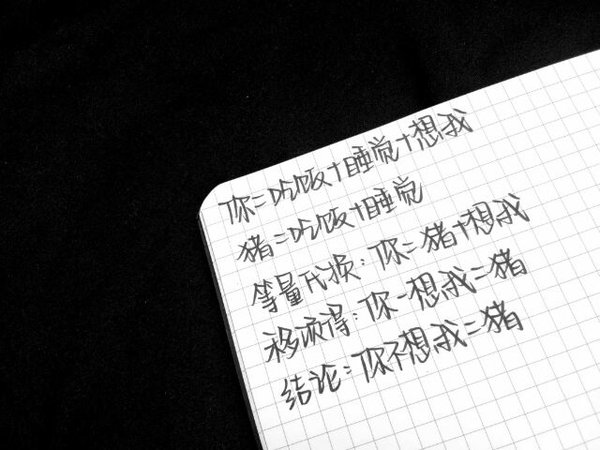 你=吃饭+睡觉+想我
猪=吃饭+睡觉
等量代换:你=猪+想我
移项得:你-想我=猪
结论:你不想我=猪